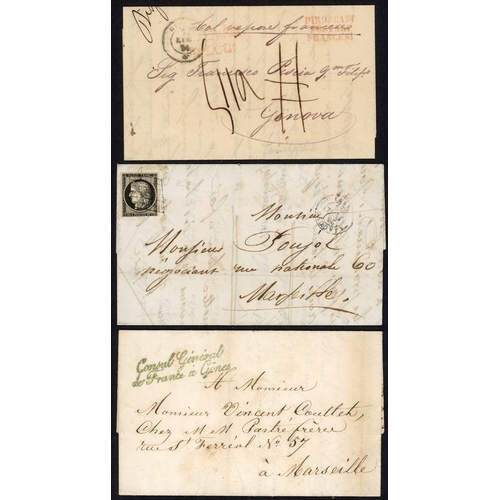 Col vapore francese
PIROSCAFI
FRANCESI
Sig Francesco
Genova
Monsieur
Monsieur Poujol
négociant rue nationale 60
Marseille.
Consul Général
de France à Gênes
A Monsieur
Monsieur Vincent Coulleth,
Chez M M Pastré frère
rue St Ferréol No 57
à Marseille